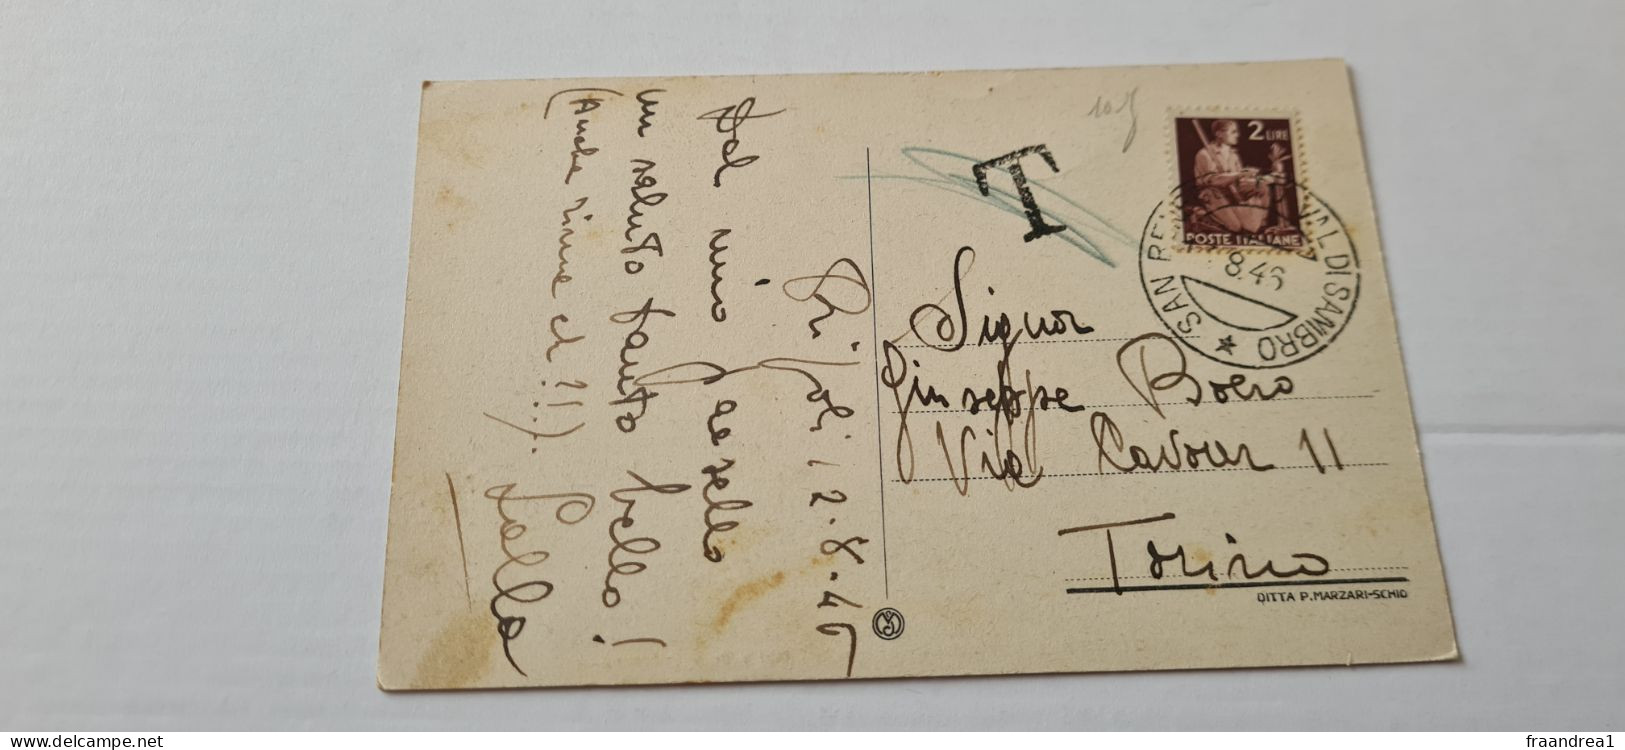 Pri joli 12.8.46
Dal mio paesello
un saluto tanto bello!
(Anche rime ch'!!).
Lella
10 f
T
2 LIRE
POSTE ITALIANE
SAN BE VAL DI SAMBRO
8.46
Signor
Giuseppe Boero
Via Cavour 11
Torino
DITTA P. MARZARI-SCHIO
www.delcampe.net
fraandrea1